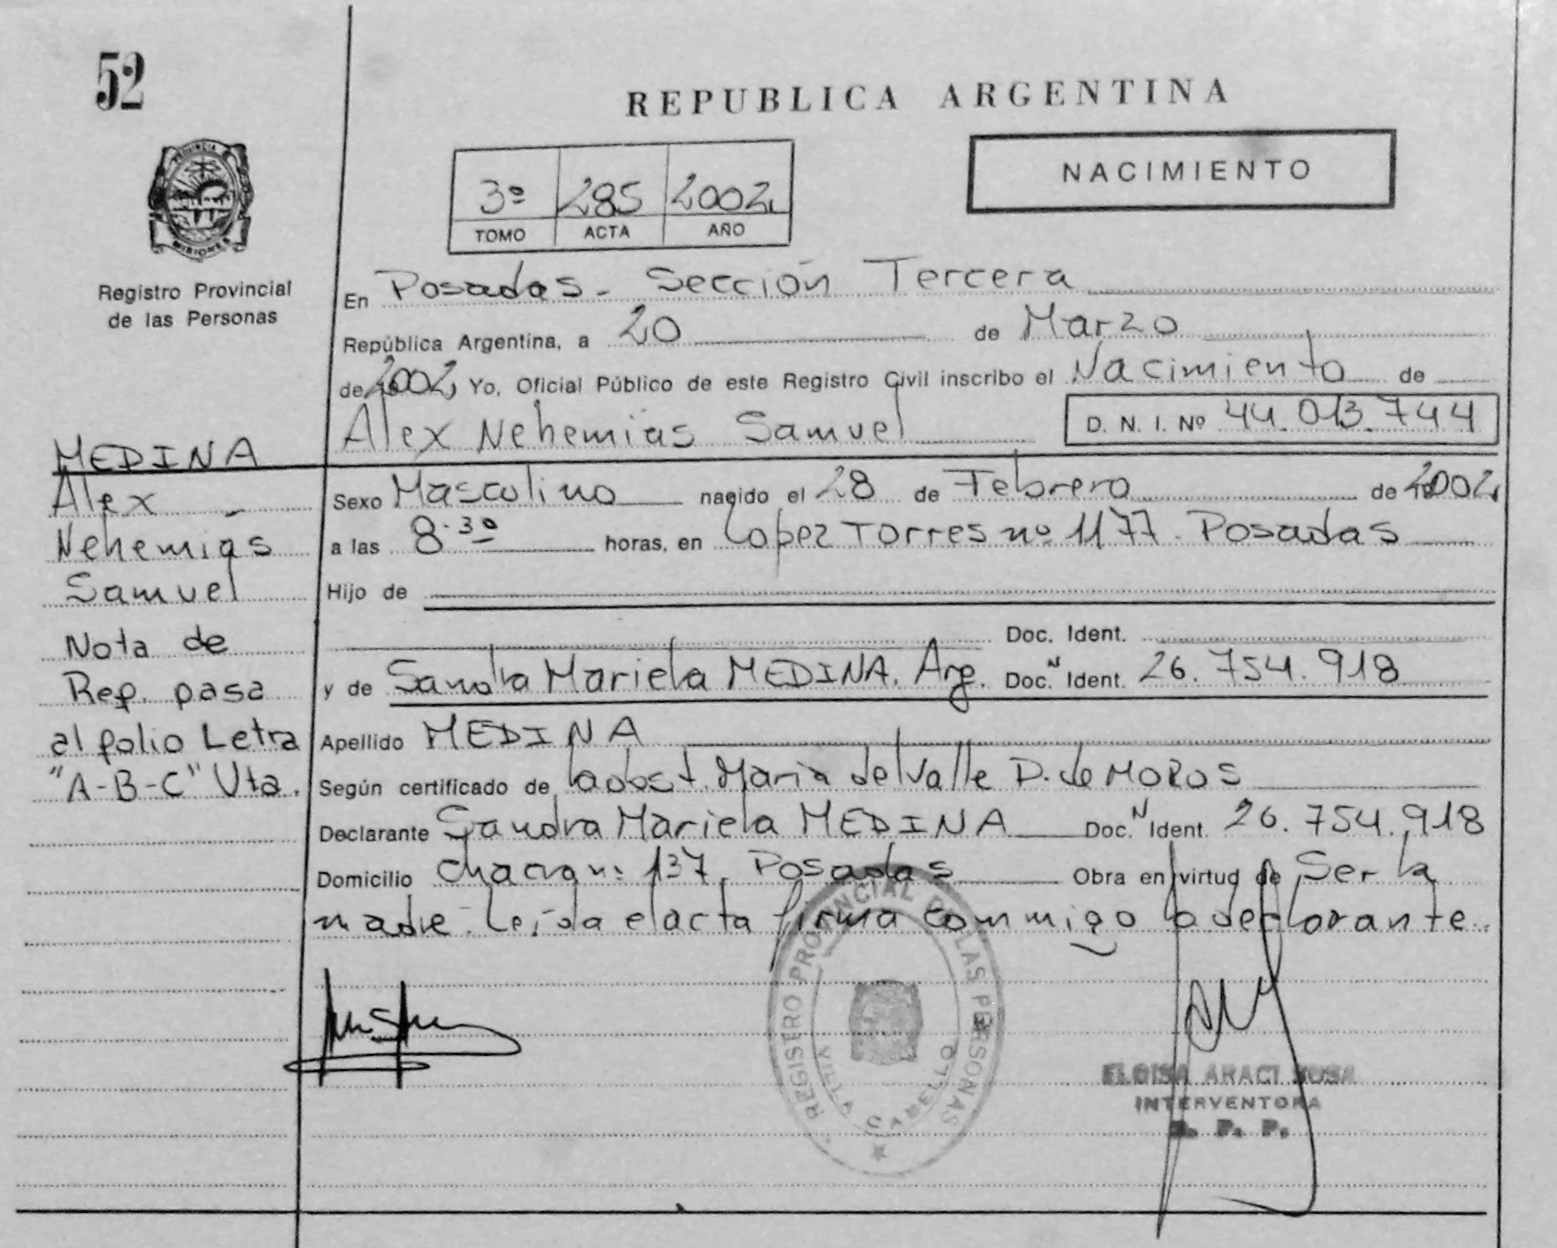 52
REPUBLICA ARGENTINA
PROVINCIA DE
MISIONES
3º 285 2002
TOMO ACTA AÑO
NACIMIENTO
Registro Provincial
de las Personas
En Posadas - Sección Tercera
República Argentina, a 20 de Marzo
de 2002, Yo, Oficial Público de este Registro Civil inscribo el Nacimiento de
Alex Nehemias Samuel D. N. I. Nº 44.013.744
MEDINA
Alex
Nehemias
Samuel
Nota de
Rep. pasa
al folio Letra
"A-B-C" Vta.
Sexo Masculino nacido el 28 de Febrero de 2002
a las 8.30 horas, en Lopez Torres nº 1177. Posadas
Hijo de
Doc. Ident.
y de Sandra Mariela MEDINA. Arg. Doc. N Ident. 26.754.918
Apellido MEDINA
Según certificado de la obst. Maria del Valle D. de MOROS
Declarante Sandra Mariela MEDINA Doc. N Ident. 26.754.918
Domicilio chacra nº 137. Posadas Obra en virtud de Ser la
madre. Leída el acta firma conmigo la declarante.
REGISTRO PROVINCIAL DE LAS PERSONAS
VILLA CABELLO
ELOISA ARACI SOSA
INTERVENTORA
R. P. P.